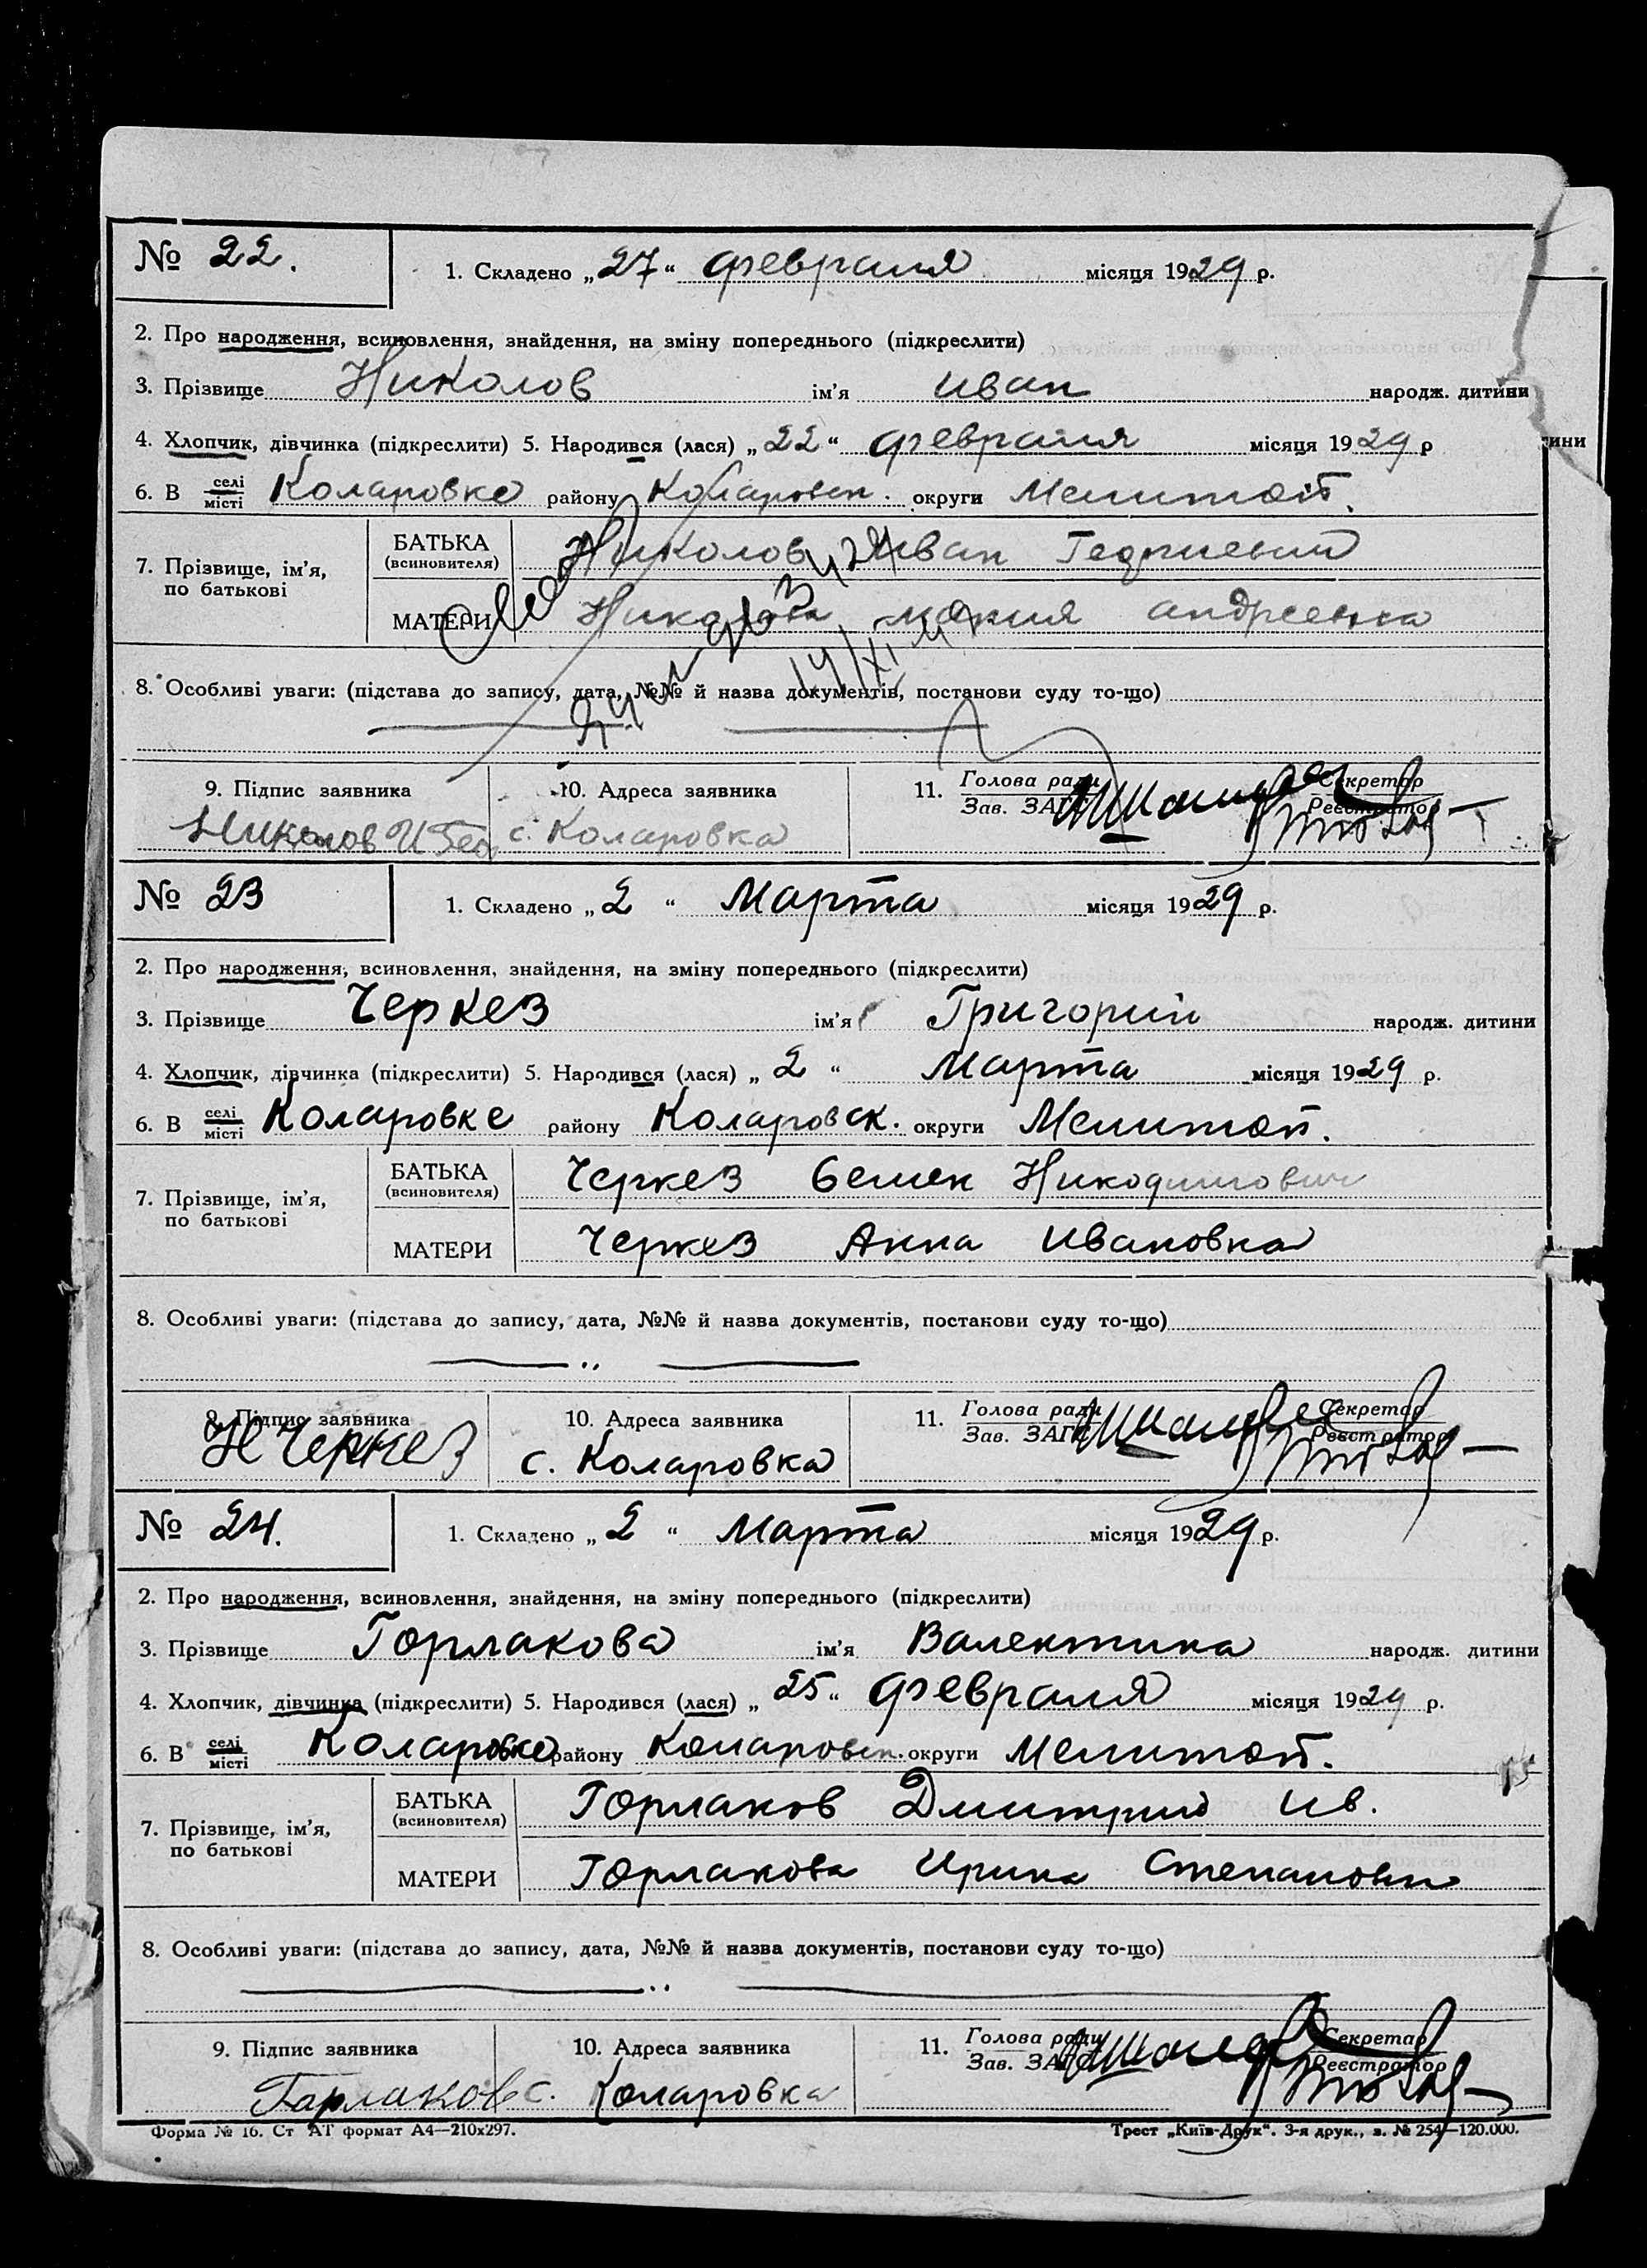 № 22.
1. Складено „27“ февраля місяця 1929 р.
2. Про народження, всиновлення, знайдення, на зміну попереднього (підкреслити)
3. Прізвище Николов ім'я Иван народж. дитини
4. Хлопчик, дівчинка (підкреслити) 5. Народився (лася) „22“ февраля місяця 1929 р
6. В селі місті Коларовке району Коларовск. округи Мелитоп.
7. Прізвище, ім'я, по батькові
БАТЬКА (всиновителя) Николов Иван Георгиевич
МАТЕРИ Николова Мария Андреевна
8. Особливі уваги: (підстава до запису, дата, №№ й назва документів, постанови суду то-що)
9. Підпис заявника 10. Адреса заявника 11. Голова ради Зав. ЗАГС Секретар Реєстратор
Николов И Гео с. Коларовка
№ 23
1. Складено „2“ Марта місяця 1929 р.
2. Про народження, всиновлення, знайдення, на зміну попереднього (підкреслити)
3. Прізвище Черкез ім'я Григорий народж. дитини
4. Хлопчик, дівчинка (підкреслити) 5. Народився (лася) „2“ Марта місяця 1929 р.
6. В селі місті Коларовке району Коларовск. округи Мелитоп.
7. Прізвище, ім'я, по батькові
БАТЬКА (всиновителя) Черкез Семен Никодимович
МАТЕРИ Черкез Анна Ивановна
8. Особливі уваги: (підстава до запису, дата, №№ й назва документів, постанови суду то-що)
9. Підпис заявника 10. Адреса заявника 11. Голова ради Зав. ЗАГС Секретар Реєстратор
Черкез с. Коларовка
№ 24.
1. Складено „2“ Марта місяця 1929 р.
2. Про народження, всиновлення, знайдення, на зміну попереднього (підкреслити)
3. Прізвище Горлакова ім'я Валентина народж. дитини
4. Хлопчик, дівчинка (підкреслити) 5. Народився (лася) „25“ февраля місяця 1929 р.
6. В селі місті Коларовке району Коларовск. округи Мелитоп.
7. Прізвище, ім'я, по батькові
БАТЬКА (всиновителя) Горлаков Дмитрий Ив.
МАТЕРИ Горлакова Ирина Степановна
8. Особливі уваги: (підстава до запису, дата, №№ й назва документів, постанови суду то-що)
9. Підпис заявника 10. Адреса заявника 11. Голова ради Зав. ЗАГС Секретар Реєстратор
Гарлаков с. Коларовка
Форма № 16. Ст АТ формат А4—210х297. Трест „Київ-Друк“. 3-я друк., з. № 254—120.000.